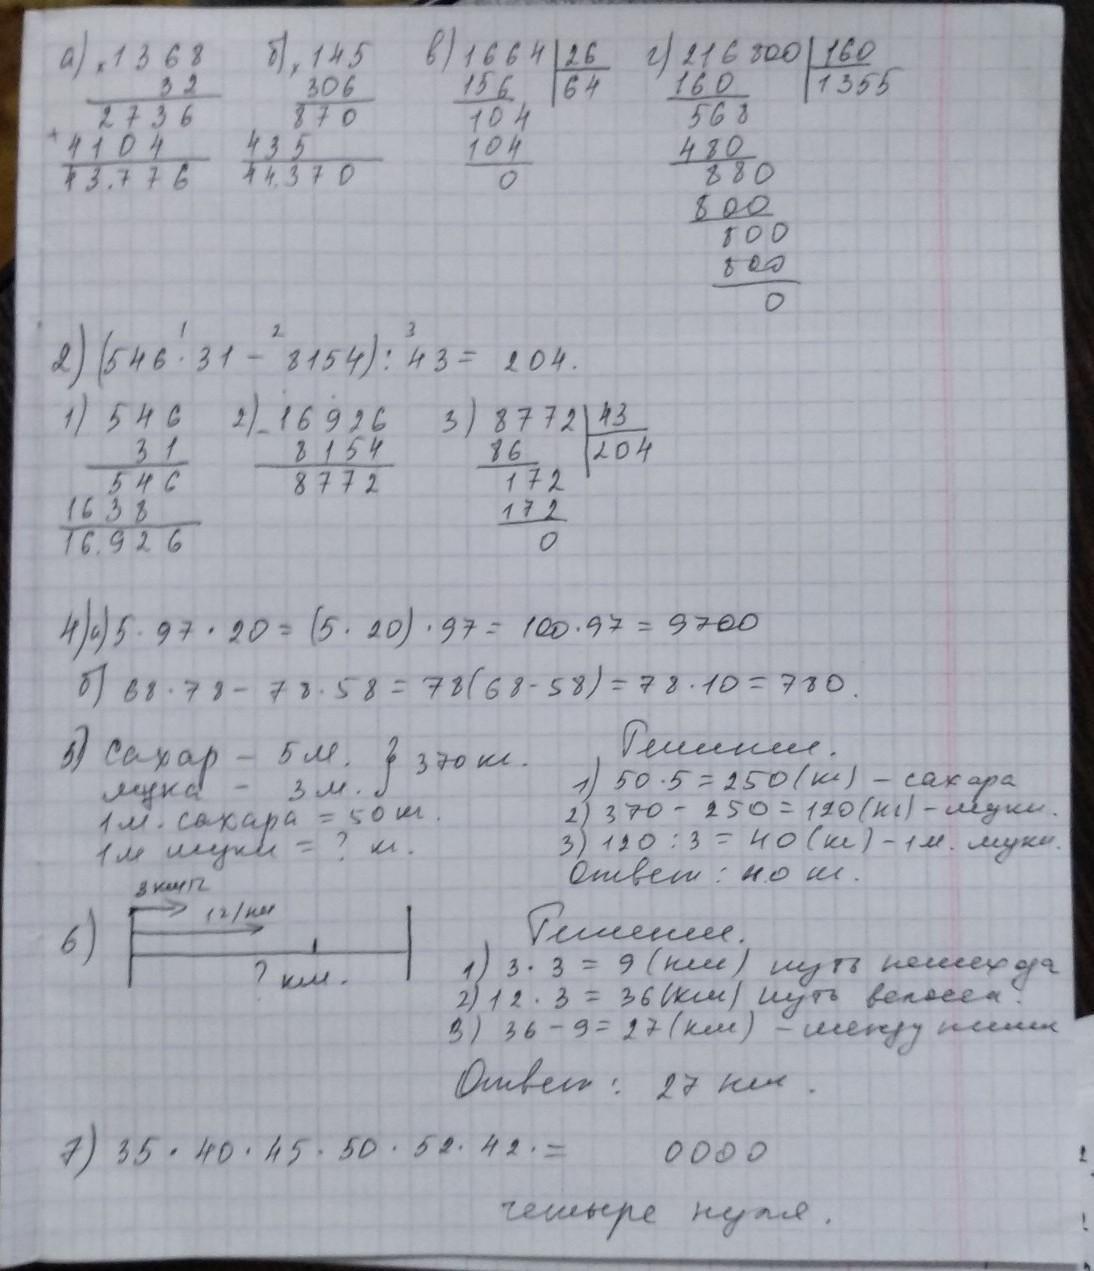 а) × 1368 б) × 145 в) 1664 | 26 г) 216800 | 160
32 306 156 64 160 1355
2736 870 104 568
+ 4104 435 104 480
43.776 44.370 0 880
800
800
800
0
1 2 3
2) (546 · 31 - 8154) : 43 = 204.
1) 546 2) - 16926 3) 8772 | 43
31 8154 86 204
546 8772 172
1638 172
16.926 0
4) а) 5 · 97 · 20 = (5 · 20) · 97 = 100 · 97 = 9700
б) 68 · 78 - 78 · 58 = 78(68 - 58) = 78 · 10 = 780.
5) Сахар - 5 м. } 370 кг.
мука - 3 м.
1 м. сахара = 50 кг.
1 м муки = ? кг.
Решение.
1) 50 · 5 = 250 (кг) - сахара
2) 370 - 250 = 120 (кг) - муки.
3) 120 : 3 = 40 (кг) - 1 м. муки.
Ответ: 40 кг.
6) 3 км/ч
12/км
? км.
Решение.
1) 3 · 3 = 9 (км) путь пешехода
2) 12 · 3 = 36 (км) путь велосел.
3) 36 - 9 = 27 (км) - между ними
Ответ: 27 км.
7) 35 · 40 · 45 · 50 · 52 · 42 · = 0000
четыре нуля.